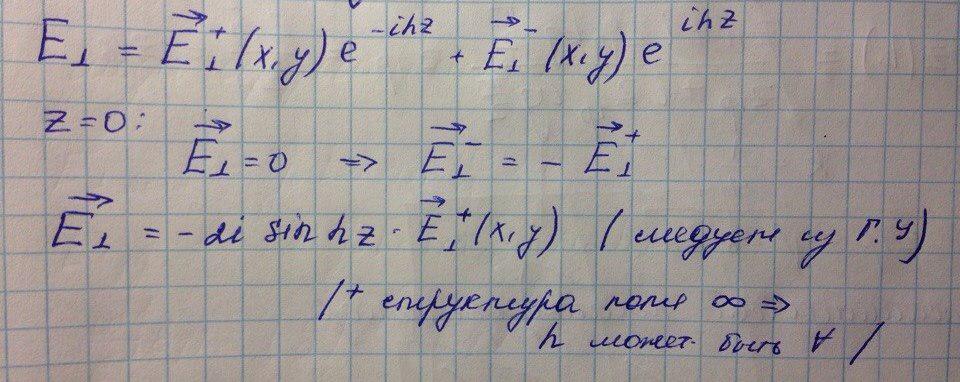 E⊥ = E⃗⊥⁺(x,y) e^{-ihz} + E⃗⊥⁻(x,y) e^{ihz}
z=0:
E⃗⊥=0 ⇒ E⃗⊥⁻ = - E⃗⊥⁺
E⃗⊥ = -2i sin hz · E⃗⊥⁺(x,y) (следует из Г.У)
/+ структура поля ∞ ⇒
h может быть ∀ /